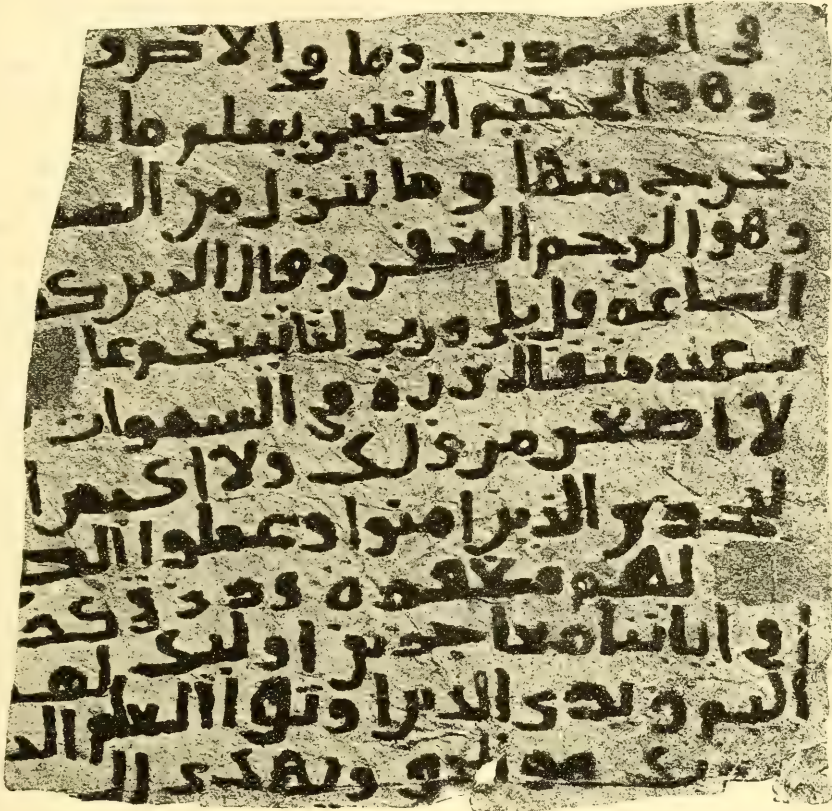 في السموت وما في الاخره
وهو الحكيم الخبير يعلم ما يل
يخرج منها وما ينزل من السـ
وهو الرحم الغفر وقال الذين كفـ
الساعه قل بلى وربي لتاتينكم عا
عنه مثقال ذره في السموات
لا اصغر من ذلك ولا اكبر ا
ليجزي الذين امنوا وعملوا الصـ
لهم مغفره ورزق كر
في اياتنا معاجزين اوليك لهم
اليم ويرى الذين اوتوا العلم الذ
ربك هو الحق ويهدي الى